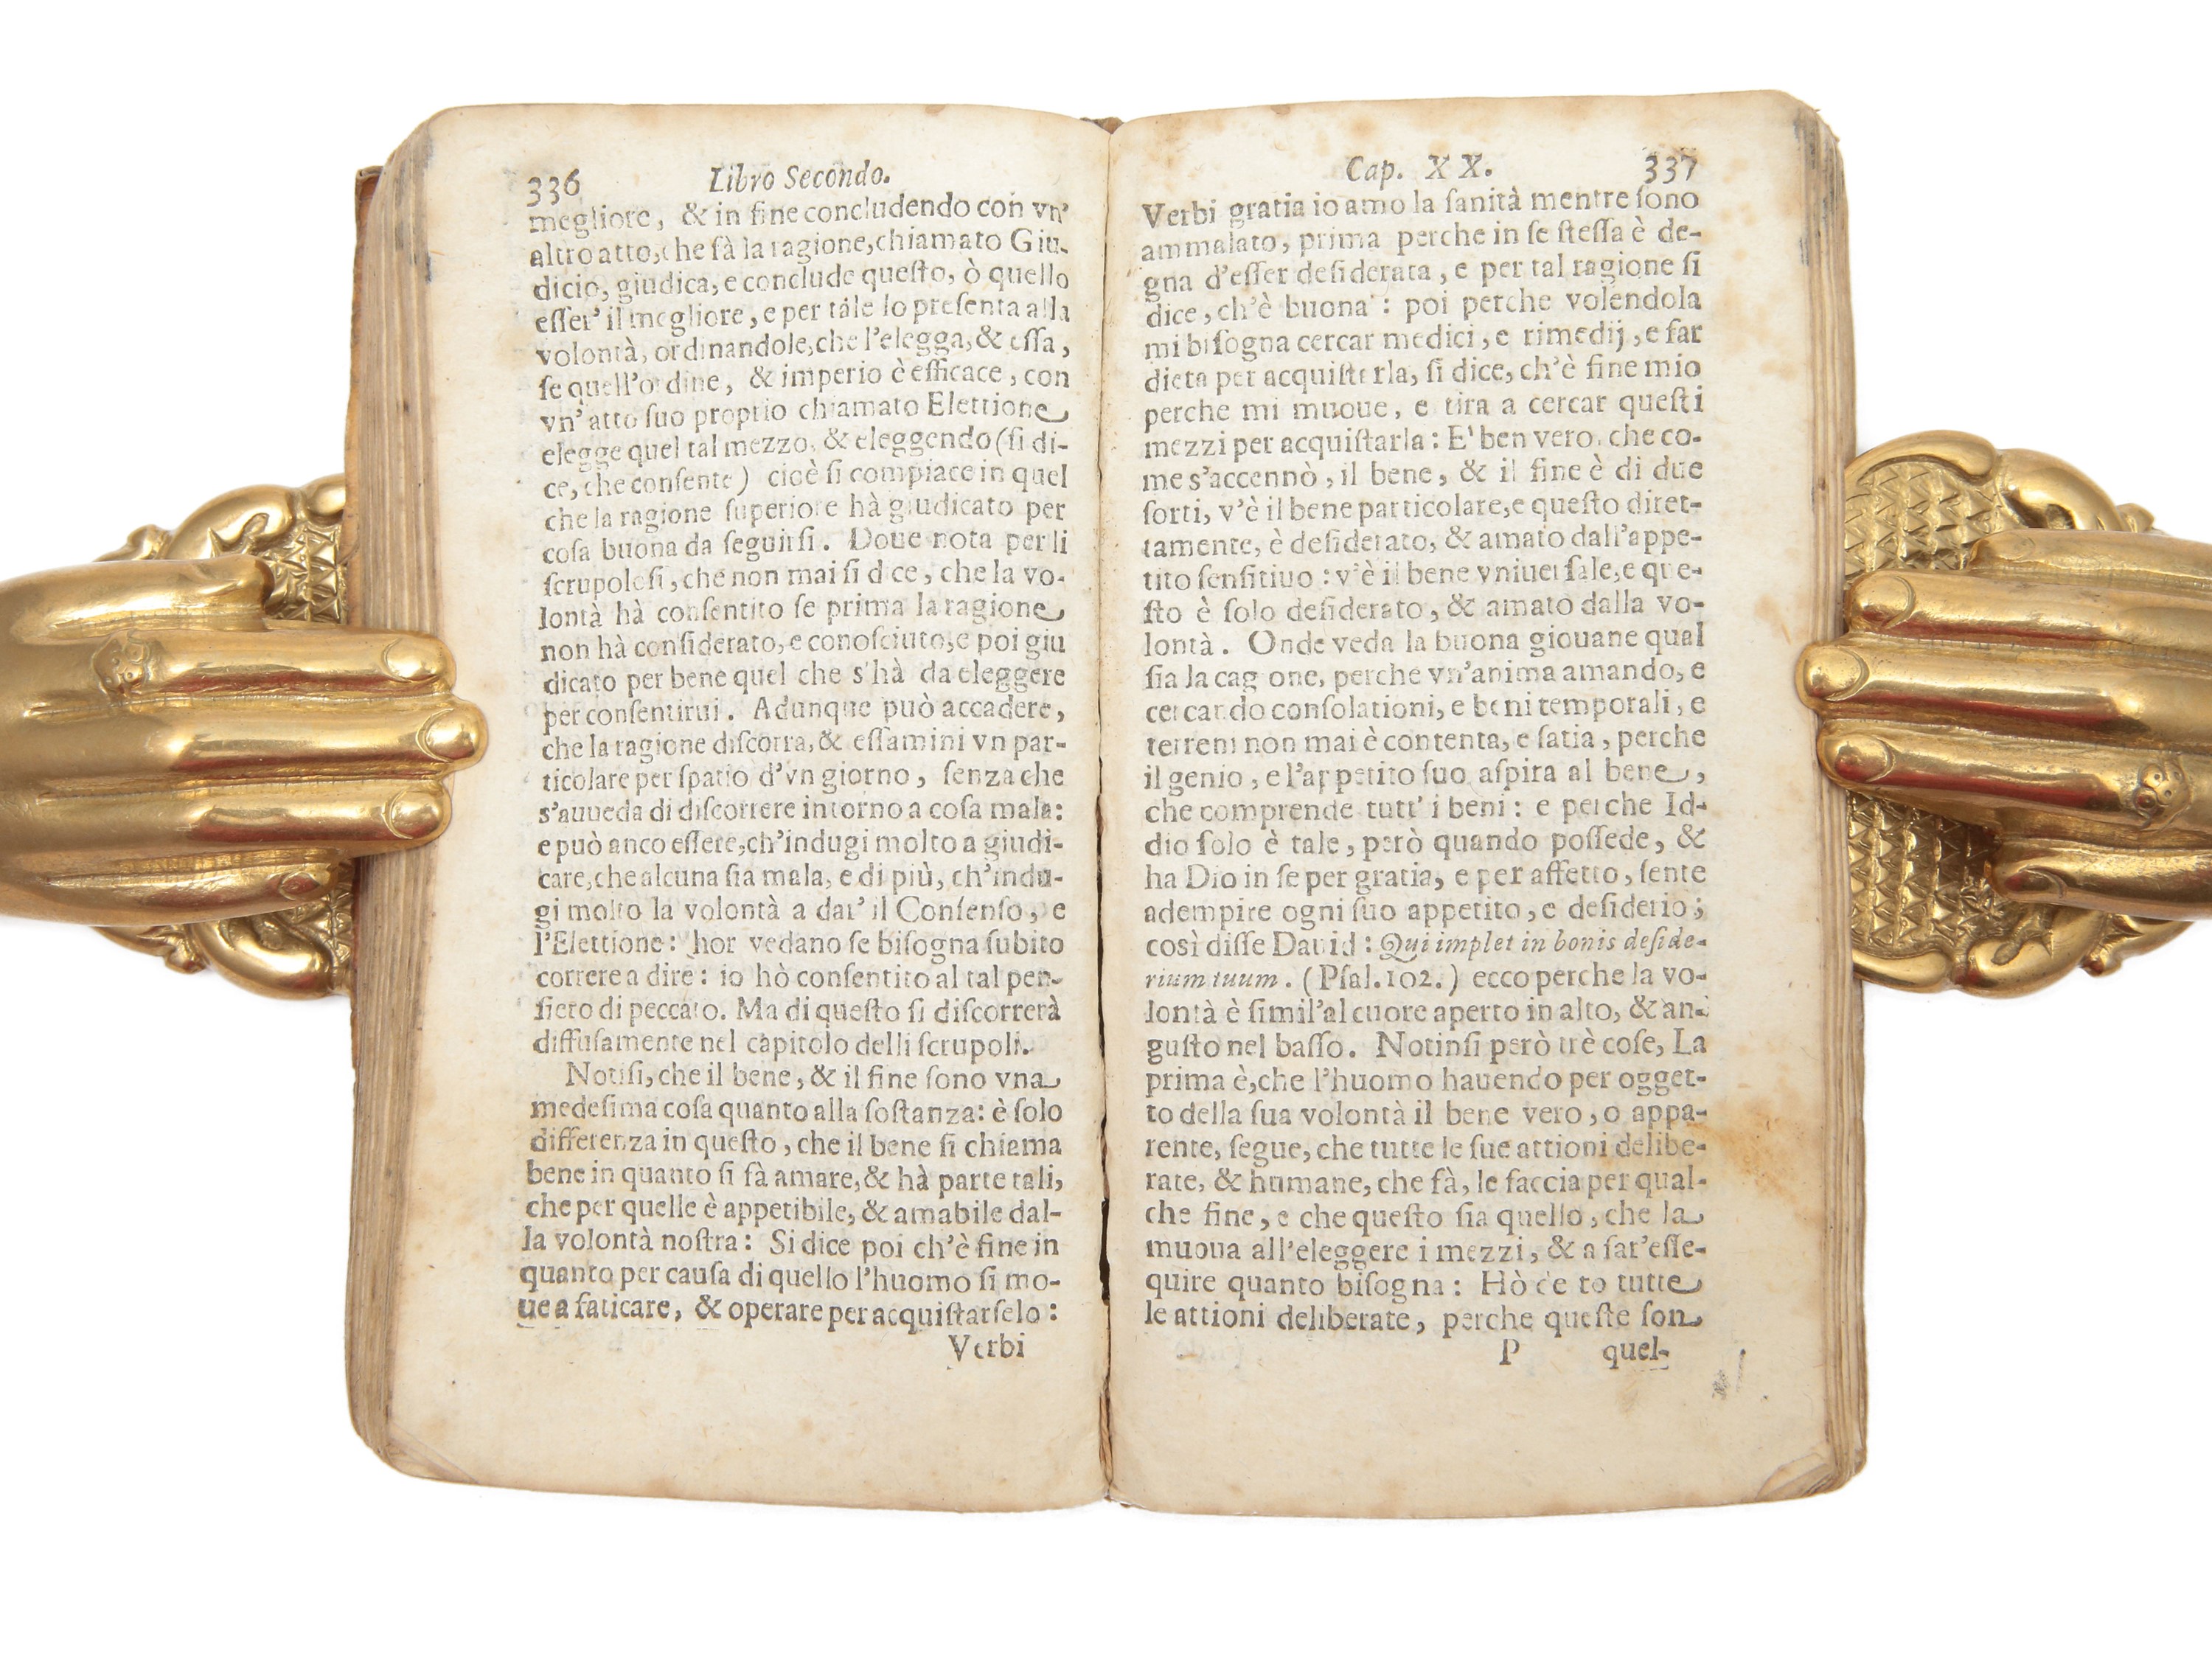 336 Libro Secondo.
megliore, & in fine concludendo con vn'
altro atto, che fà la ragione, chiamato Giu-
dicio, giudica, e conclude queſto, ò quello
eſſer' il megliore, e per tále lo preſenta alla
volontà, ordinandole, che l'elegga, & eſſa,
ſe quell'ordine, & imperio è efficace, con
vn' atto ſuo proprio chiamato Elettione
elegge quel tal mezzo, & eleggendo (ſi di-
ce, che conſente) cioè ſi compiace in quel
che la ragione ſuperiore hà giudicato per
coſa buona da ſeguirſi. Doue nota per li
ſcrupoloſi, che non mai ſi dice, che la vo-
lontà hà conſentito ſe prima la ragione
non hà conſiderato, e conoſciuto, e poi giu
dicato per bene quel che s'hà da eleggere
per conſentirui. Adunque può accadere,
che la ragione diſcorra, & eſſamini vn par-
ticolare per ſpatio d'vn giorno, ſenza che
s'auueda di diſcorrere intorno a coſa mala:
e può anco eſſere, ch'indugi molto a giudi-
care, che alcuna ſia mala, e di più, ch'indu-
gi molto la volontà a dar' il Conſenſo, e
l'Elettione: hor vedano ſe biſogna ſubito
correre a dire: io hò conſentito al tal pen-
ſiero di peccato. Ma di queſto ſi diſcorrerà
diffuſamente nel capitolo delli ſcrupoli.
Notiſi, che il bene, & il fine ſono vna
medeſima coſa quanto alla ſoſtanza: è ſolo
differenza in queſto, che il bene ſi chiama
bene in quanto ſi fà amare, & hà parte tali,
che per quelle è appetibile, & amabile dal-
la volontà noſtra: Si dice poi ch'è fine in
quanto per cauſa di quello l'huomo ſi mo-
ue a faticare, & operare per acquiſtarſelo:
Verbi
Cap. XX. 337
Verbi gratia io amo la ſanità mentre ſono
ammalato, prima perche in ſe ſteſſa è de-
gna d'eſſer deſiderata, e per tal ragione ſi
dice, ch'è buona: poi perche volendola
mi biſogna cercar medici, e rimedij, e far
dieta per acquiſtarla, ſi dice, ch'è fine mio
perche mi muoue, e tira a cercar queſti
mezzi per acquiſtarla: E' ben vero, che co-
me s'accennò, il bene, & il fine è di due
ſorti, v'è il bene particolare, e queſto diret-
tamente, è deſiderato, & amato dall'appe-
tito ſenſitiuo: v'è il bene vniuerſale, e que-
ſto è ſolo deſiderato, & amato dalla vo-
lontà. Onde veda la buona giouane qual
ſia la cagione, perche vn'anima amando, e
cercando conſolationi, e beni temporali, e
terreni non mai è contenta, e ſatia, perche
il genio, e l'appetito ſuo aſpira al bene,
che comprende tutt' i beni: e perche Id-
dio ſolo è tale, però quando poſſede, &
ha Dio in ſe per gratia, e per affetto, ſente
adempire ogni ſuo appetito, e deſiderio;
così diſſe Dauid: Qui implet in bonis deſide-
rium tuum. (Pſal. 102.) ecco perche la vo-
lontà è ſimil'al cuore aperto in alto, & an-
guſto nel baſſo. Notinſi però trè coſe, La
prima è, che l'huomo hauendo per ogget-
to della ſua volontà il bene vero, o appa-
rente, ſegue, che tutte le ſue attioni delibe-
rate, & humane, che fà, le faccia per qual-
che fine, e che queſto ſia quello, che la
muoua all'eleggere i mezzi, & a far'eſſe-
quire quanto biſogna: Hò detto tutte
le attioni deliberate, perche queſte ſon
P quel-